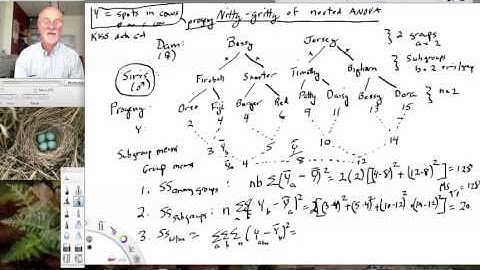 Y = spots in cows progeny Nitty-gritty of nested ANOVA
KISS data set
Dam: Bossy Jersey } 2 groups
(♀) a = 2
Sires Fireball Snorter Timothy Bighorn } Subgroups
(♂) b = 2
Progeny Oreo Fiji Burger Red Patty Daisy Bessy Dora } n = 2
Y 2 4 4 6 9 11 13 15
Subgroup means 3 Ȳb 5 10 14
Group means Ȳa 4 8 12
1. SS among groups: nb Σ(Ȳa - Ȳ)² = 2(2)[(4-8)² + (12-8)²] = 128
2. SS subgroups: n ΣΣ(Ȳb - Ȳa)² = 2[(3-4)² + (5-4)² + (10-12)² + (14-12)²] = 20
3. SS within = ΣΣΣ(Yabn - Ȳb)² =